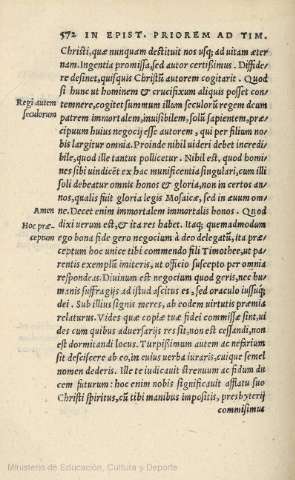 572 IN EPIST. PRIOREM AD TIM.
Christi, quæ nunquam destituit nos usq; ad uitam æter
nam. Ingentia promissa, sed autor certissimus. Diffide/
re desinet, quisquis Christũ autorem cogitarit. Quod
si hunc ut hominem & crucifixum aliquis posset con
Regi autem
seculorum
temnere, cogitet summum illum seculorũ regem deum
patrem immortalem, inuisibilem, solũ sapientem, præ/
cipuum huius negocij esse autorem, qui per filium no/
bis largitur omnia. Proinde nihil uideri debet incredi/
bile, quod ille tantus pollicetur. Nihil est, quod homi/
nes sibi uindicẽt ex hac munificentia singulari, cum illi
soli debeatur omnis honos & gloria, non in certos an/
nos, qualis fuit gloria legis Mosaicæ, sed in æuum om/
Amen
ne. Decet enim immortalem immortalis honos. Quod
Hoc præ/
ceptum
dixi uerum est, & ita res habet. Itaq; quemadmodum
ego bona fide gero negocium à deo delegatũ, ita præ/
ceptum hoc unice tibi commendo fili Timothee, ut pa/
rentis exemplũ imiteris, ut officio suscepto per omnia
respondeas. Diuinum est negocium quod geris, nec hu/
manis suffragijs ad istud ascitus es, sed oraculo iussuq;
dei. Sub illius signis meres, ab eodem uirtutis præmia
relaturus. Vides quæ copiæ tuæ fidei commissæ sint, ui
des cum quibus aduersarijs res sit, non est cessandi, non
est dormitandi locus. Turpissimum autem ac nefarium
sit desciscere ab eo, in cuius uerba iuraris, cuique semel
nomen dederis. Ille te iudicauit strenuum ac fidum du
cem futurum: hoc enim nobis significauit afflatu suo
Christi spiritus, cũ tibi manibus impositis, presbyterij
commisimus
Ministerio de Educación, Cultura y Deporte